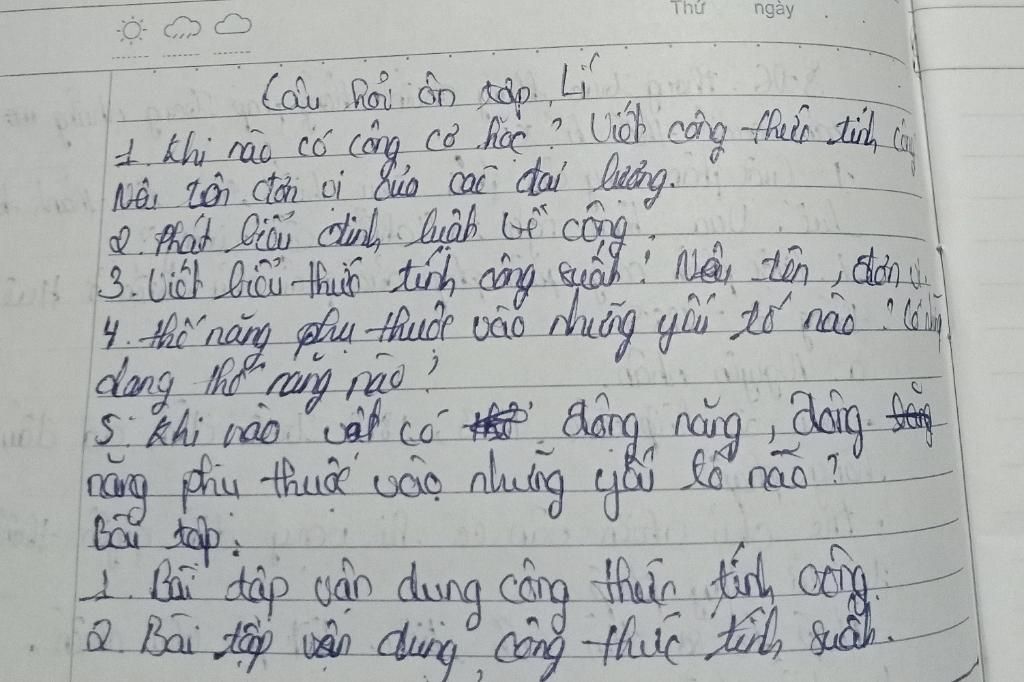 Thứ ngày
Câu hỏi ôn tập Lí
1. Khi nào có công cơ học? Viết công thức tính
Nêu tên đơn vị của các đại lượng.
2. Phát biểu định luật về công.
3. Viết biểu thức tính công suất? Nêu tên, đơn vị
4. thế năng phụ thuộc vào những yếu tố nào? Có những
dạng thế năng nào?
5. Khi nào vật có động năng, động
năng phụ thuộc vào những yếu tố nào?
Bài tập:
1. Bài tập vận dụng công thức tính công.
2. Bài tập vận dụng công thức tính suất.